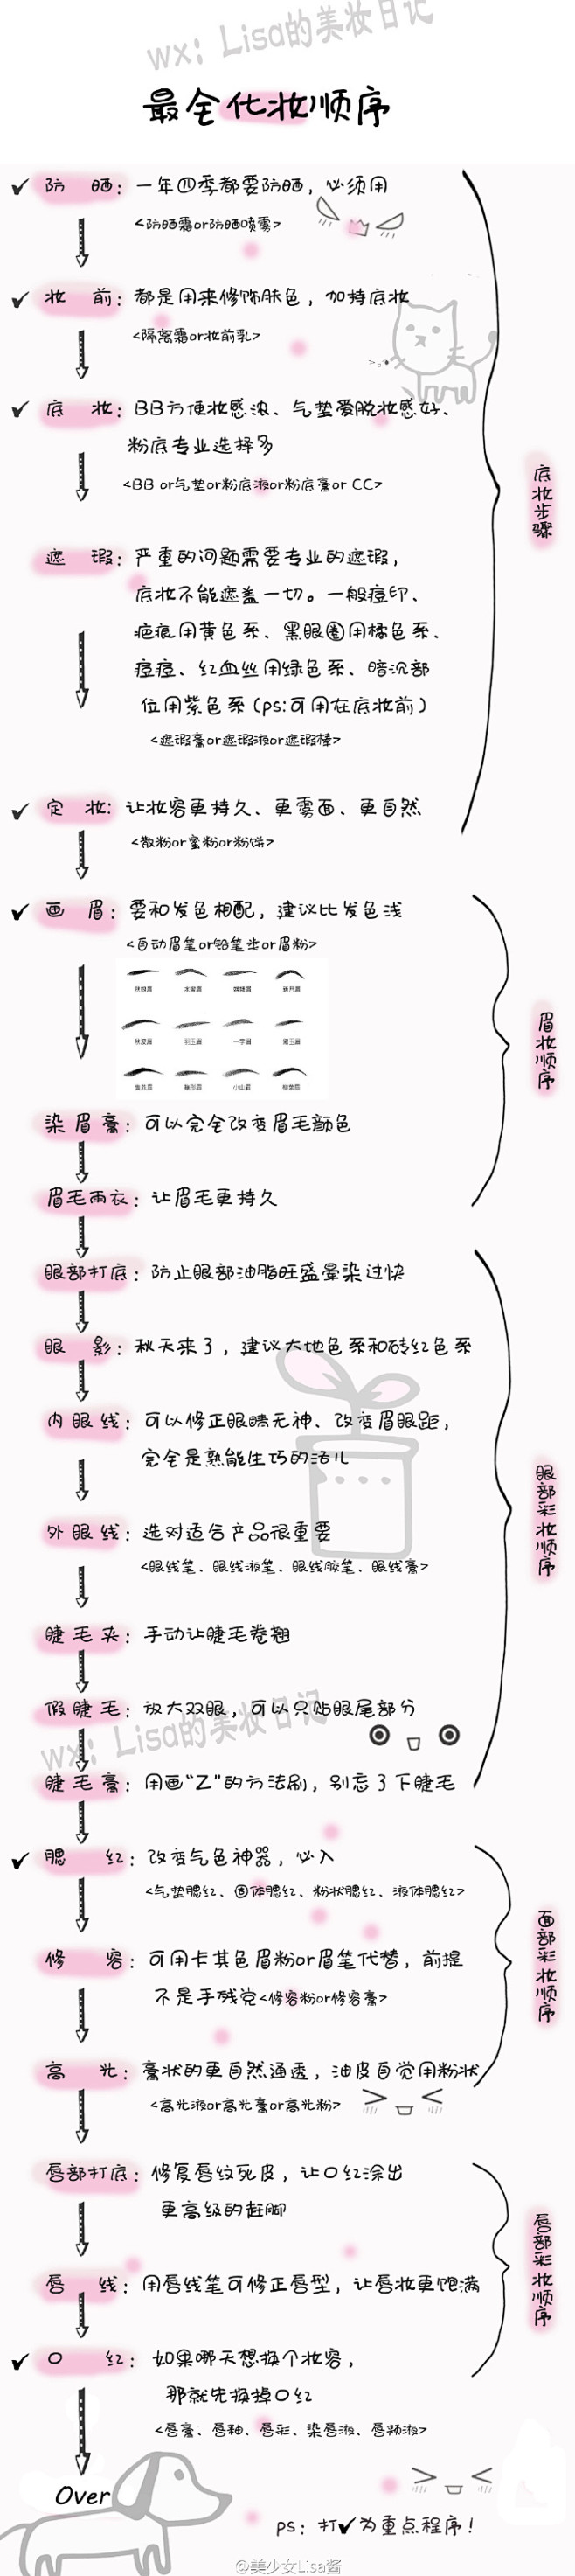 wx: Lisa的美妆日记
最全化妆顺序
✔ 防 晒: 一年四季都要防晒, 必须用
<防晒霜or防晒喷雾>
✔ 妆 前: 都是用来修饰肤色, 加持底妆
<隔离霜or妆前乳>
✔ 底 妆: BB方便妆感浓、气垫爱脱妆感好、
粉底专业选择多
<BB or气垫or粉底液or粉底膏or CC>
遮 瑕: 严重的问题需要专业的遮瑕,
底妆不能遮盖一切。一般痘印、
疤痕用黄色系、黑眼圈用橘色系、
痘痘、红血丝用绿色系、暗沉部
位用紫色系(ps:可用在底妆前)
<遮瑕膏or遮瑕液or遮瑕棒>
✔ 定 妆: 让妆容更持久、更雾面、更自然
<散粉or蜜粉or粉饼>
底妆步骤
✔ 画 眉: 要和发色相配, 建议比发色浅
<自动眉笔or铅笔染or眉粉>
秋波眉 水弯眉 嫦娥眉 新月眉
秋波眉 羽玉眉 一字眉 黛玉眉
小山眉 柳葉眉
染眉膏: 可以完全改变眉毛颜色
眉毛雨衣: 让眉毛更持久
眉妆顺序
眼部打底: 防止眼部油脂旺盛晕染过快
眼 影: 秋天来了, 建议大地色系和砖红色系
内眼线: 可以修正眼睛无神、改变眉眼距,
完全是熟能生巧的活儿
外眼线: 选对适合产品很重要
<眼线笔、眼线液笔、眼线胶笔、眼线膏>
睫毛夹: 手动让睫毛卷翘
假睫毛: 放大双眼, 可以只贴眼尾部分
wx: Lisa的美妆日记
睫毛膏: 用画“Z”的方法刷, 别忘了下睫毛
眼部彩妆顺序
✔ 腮 红: 改变气色神器, 必入
<气垫腮红、固体腮红、粉状腮红、液体腮红>
修 容: 可用卡其色眉粉or眉笔代替, 前提
不是手残党<修容粉or修容膏>
高 光: 膏状的更自然通透, 油皮自觉用粉状
<高光液or高光膏or高光粉>
面部彩妆顺序
唇部打底: 修复唇纹死皮, 让口红涂出
更高级的赶脚
唇 线: 用唇线笔可修正唇型, 让唇妆更饱满
✔ 口 红: 如果哪天想换个妆容,
那就先换掉口红
<唇膏、唇釉、唇彩、染唇液、唇颊液>
唇部彩妆顺序
Over
ps: 打✔为重点程序!
@美少女Lisa酱